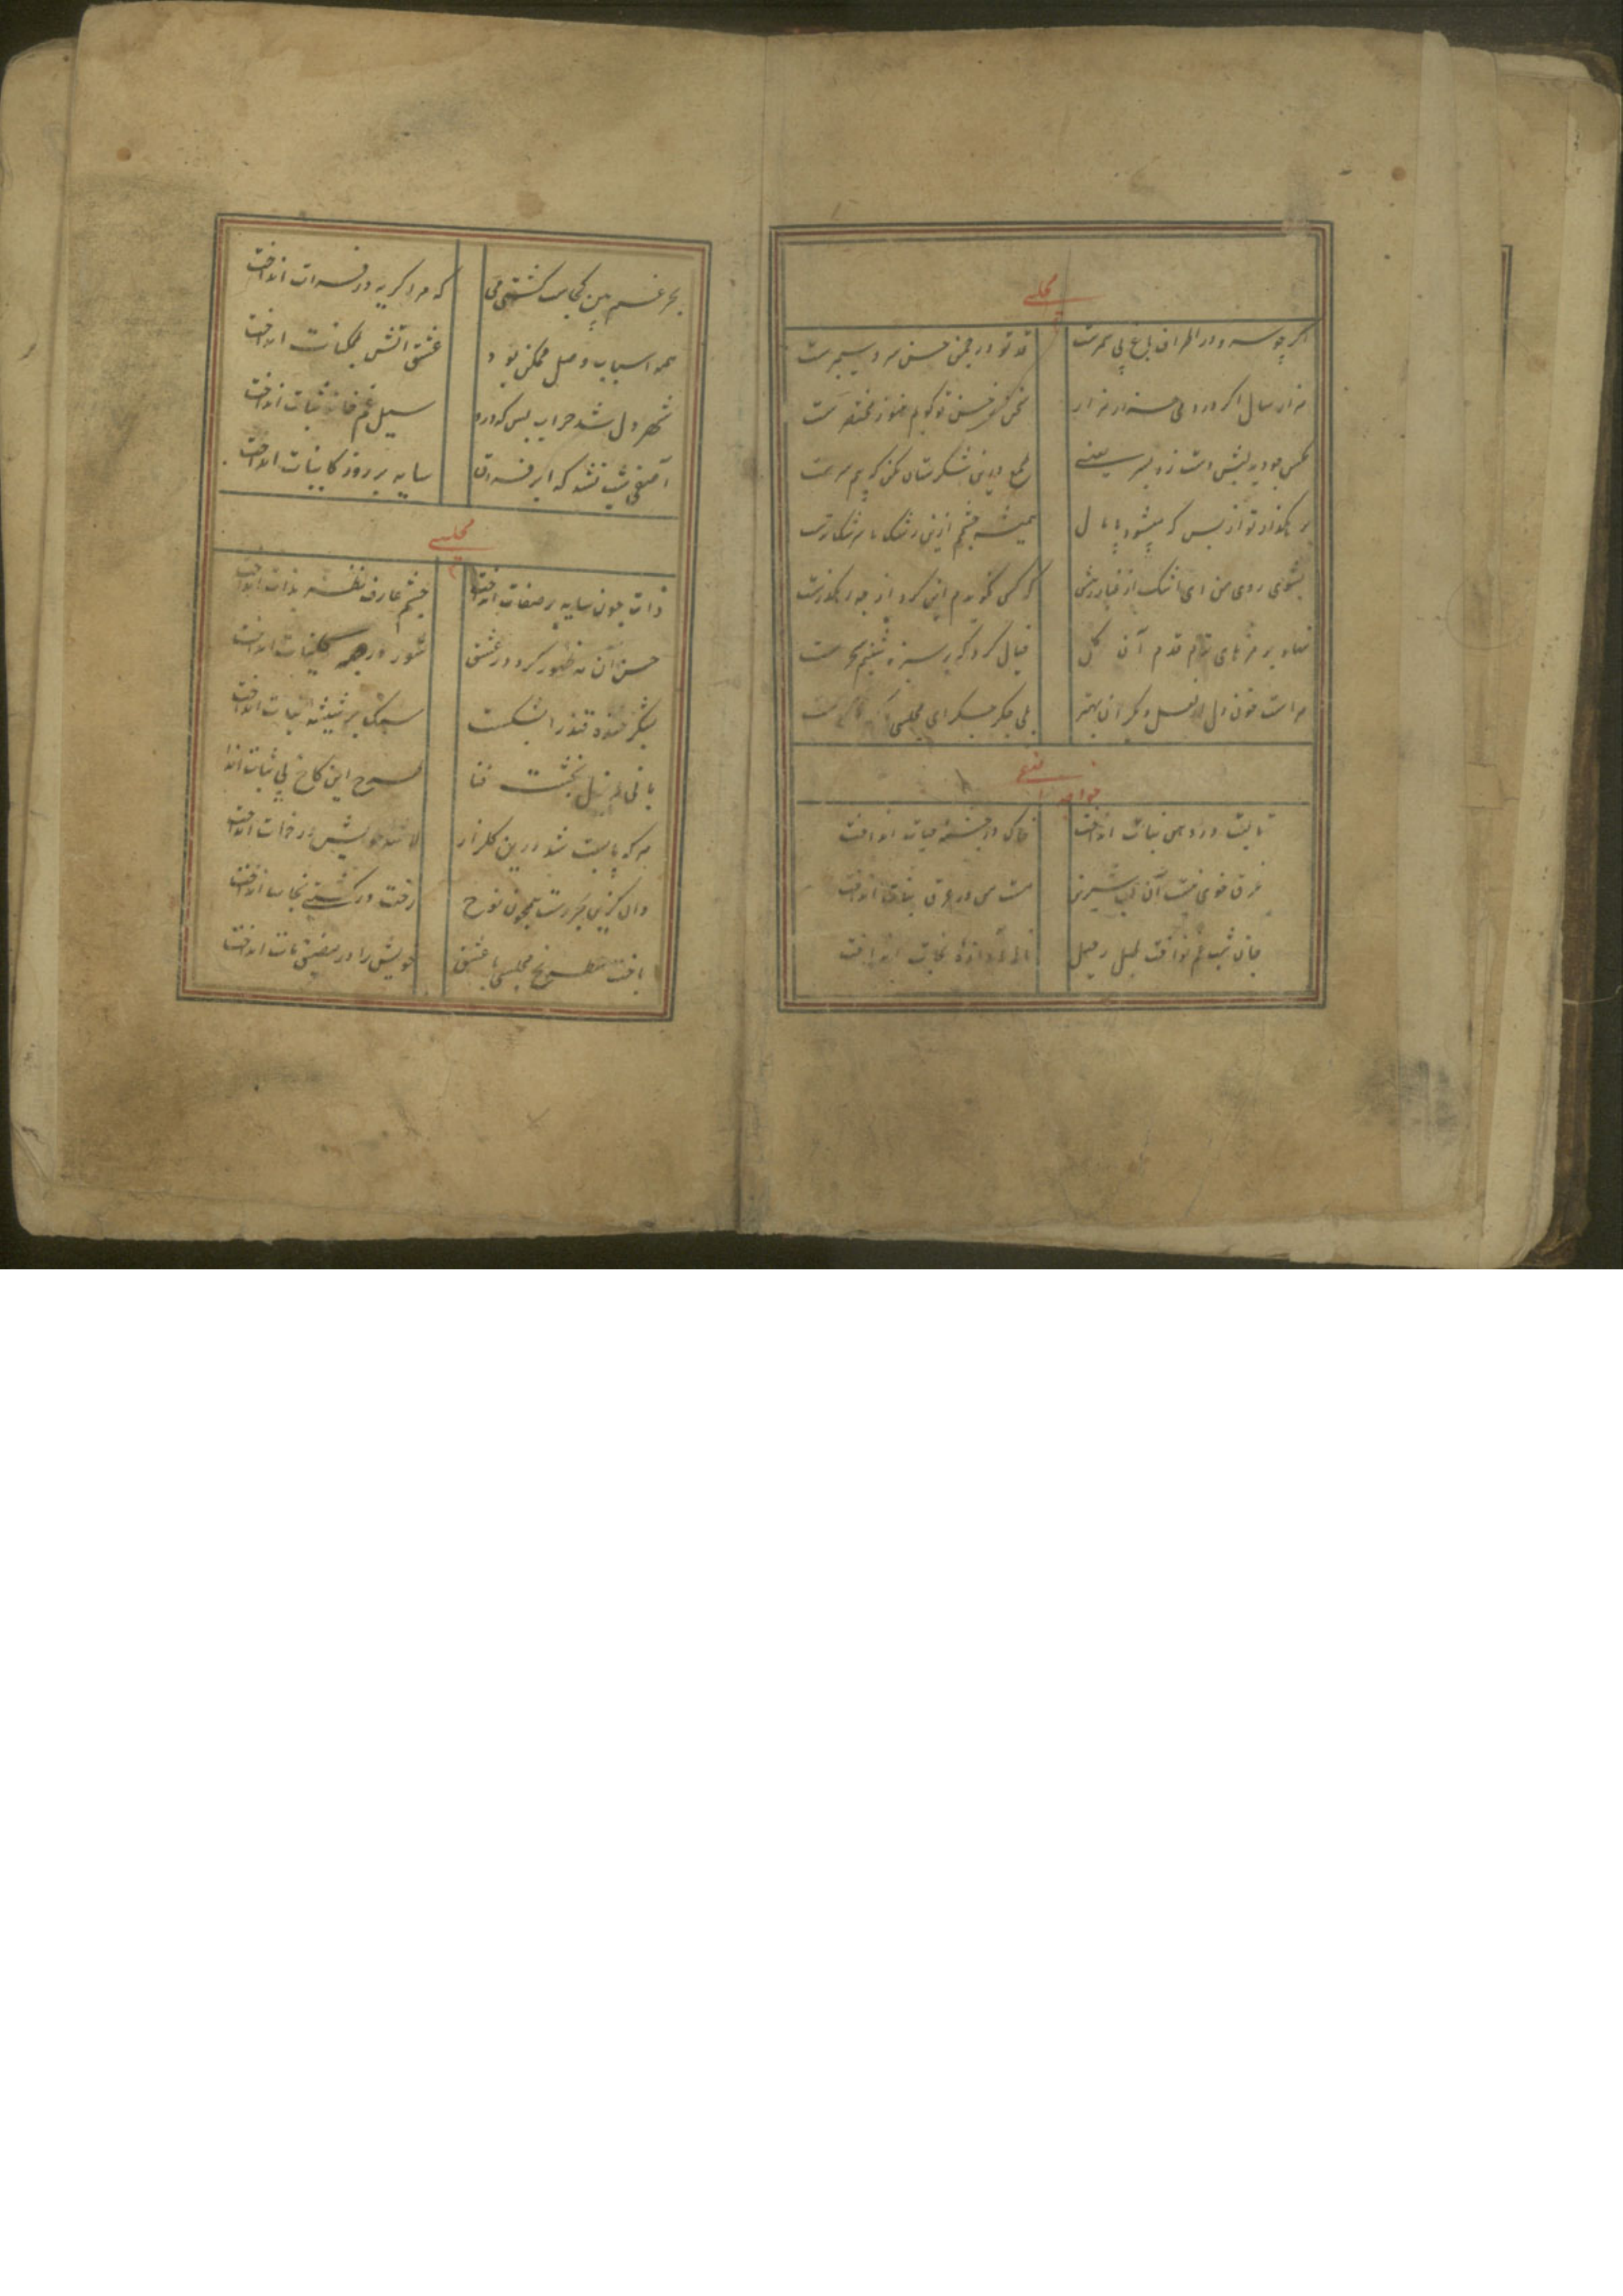 مجلسی
اگر چو سرو در اطراف باغ بی ثمرست
قد تو در چمن حسن سرو سیمبرست
هزار سال اگر در دمی هزار هزار
سخن ز حسن تو گویم هنوز مختصرست
مگس چو دید لبش دست زد بسر یعنی
طمع درین شکرستان مکن که بیم سرست
بر هگذار تو از بس که میشود پامال
همیشه چشم ازین رشک ما سرشک ترست
بشوی روی من ای اشک از غبار رهش
که کس نگویدم این گرد از چه رهگذرست
نهاد بر مژهای ترم قدم آن گل
خیال کرد که بر سبزه شبنم سحرست
مراست خون دل از لعل دیگران بهتر
بی جگر جگر ای مجلسی
خواجه آصفی
تا لبت در دهن نبات انداخت
خاک در چشمه حیات انداخت
غرق خوی نیست آن لب شیرین
ست می در عرق نبات انداخت
جان شب غم نواخت طبل رحیل
ناله آوازه نجات انداخت
بحر غم بین کجاست کشتی می
که مرا گریه در فرات انداخت
همه اسباب وصل ممکن بود
عشق اتش بممکنات انداخت
شهر دل شد خراب بس که درو
سیل غم خانه ثبات انداخت
آصفی شب نشد که ابر فراق
سایه بر روز کاینات انداخت
مجلسی
ذات چون سایه بر صفات انداخت
چشم عارف نظر بذات انداخت
حسن آن مه ظهور کرد در عشق
شور در جمله کاینات انداخت
بشکر خنده قند را بشکست
سنک بر شیشه نبات انداخت
بانی منزل بخشت فنا
طرح این کاخ بی ثبات اندا
هر که پابست شد درین گلزار
خویش در انداخت
وان کزین بحر رست همچون نوح
رخت در کشتی نجات انداخت
باخت شطرنج مجلسی با عشق
خویش را در مضیق مات انداخت